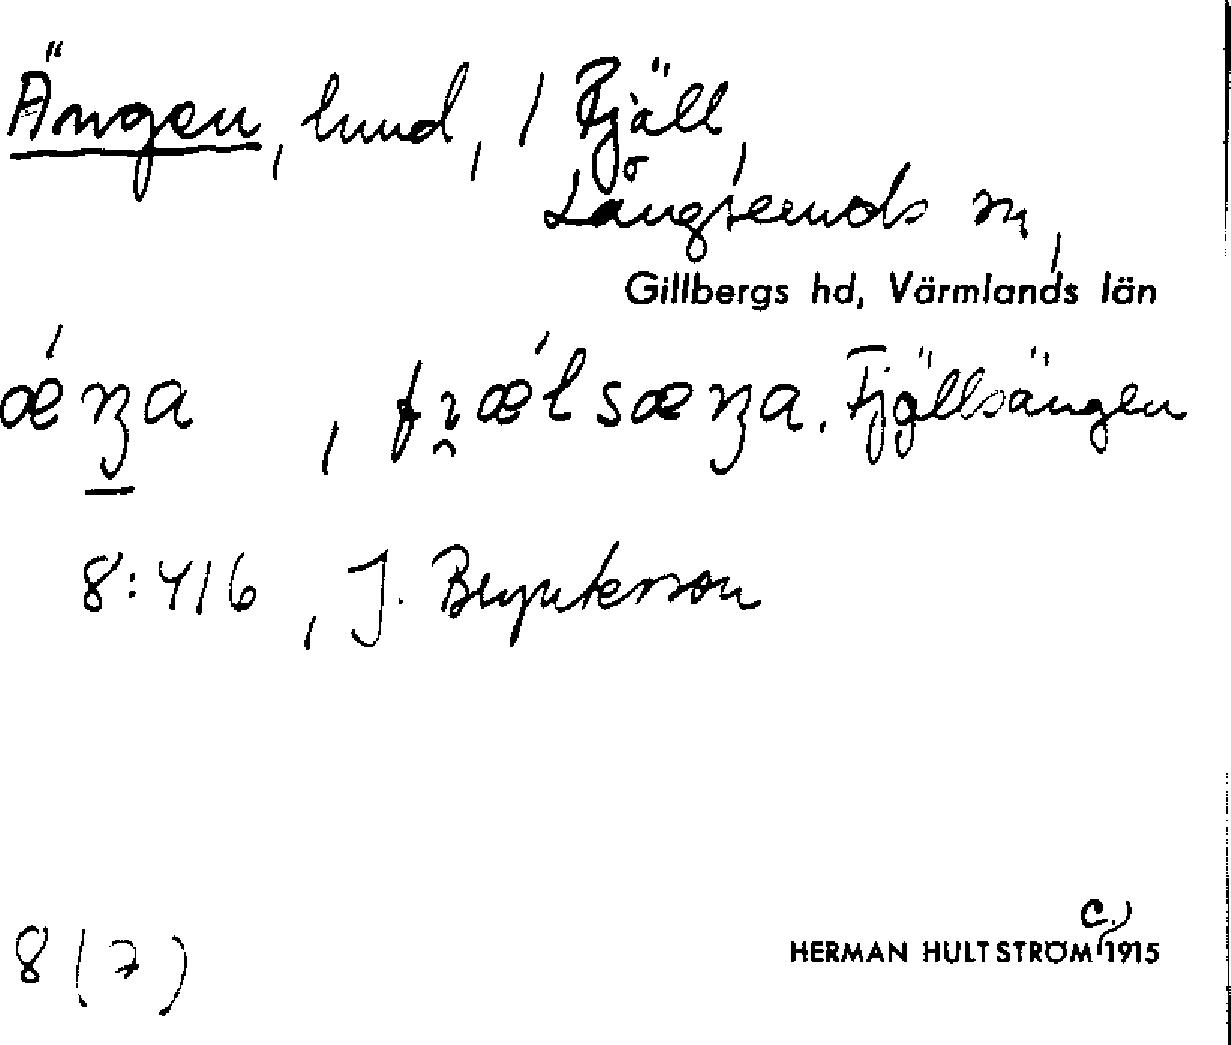 Ängen, hmd, / Fjäll,
Långseruds sn,
Gillbergs hd, Värmlands län
ǽŋa , fi̯ǽlsæŋa. Fjällsängen
8:416, J. Bryntesson
8 (7)
c.)
HERMAN HULTSTRÖM 1915